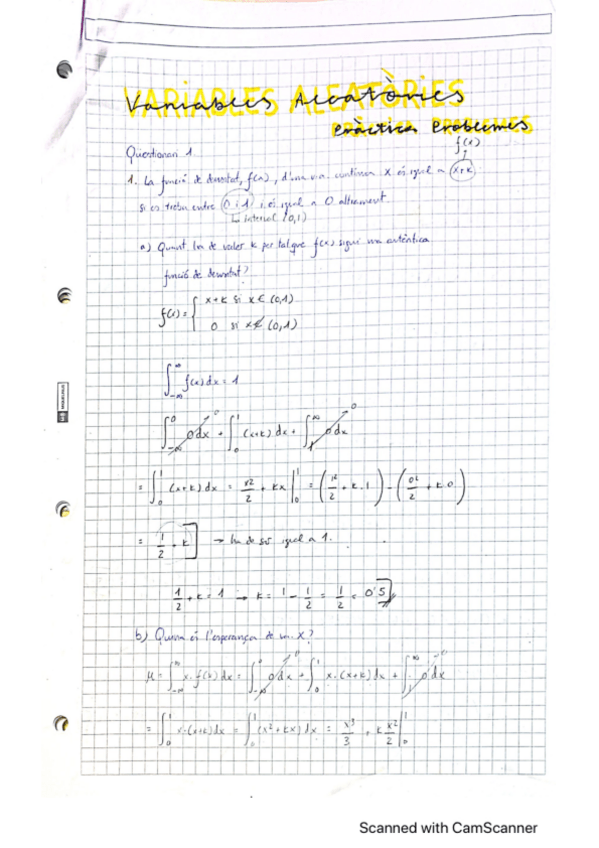 VARIABLES ALEATÒRIES
Variables Aleatòries
Pràctica Problemes
Qüestionari 1.
f(x)
1. La funció de densitat, f(x), d'una v.a. contínua X és igual a x+k
si es troba entre 0 i 1 i és igual a 0 altrament.
↳ interval (0,1)
a) Quant ha de valer k per tal que f(x) sigui una autèntica
funció de densitat?
f(x) = { x+k si x ∈ (0,1)
0 si x ∉ (0,1)
∫_{-∞}^{∞} f(x) dx = 1
∫_{-∞}^{0} 0 dx + ∫_0^1 (x+k) dx + ∫_1^∞ 0 dx
= ∫_0^1 (x+k) dx = x²/2 + kx |_0^1 = (1²/2 + k·1) - (0²/2 + k·0)
= 1/2 + k → ha de ser igual a 1.
1/2 + k = 1 → k = 1 - 1/2 = 1/2 = 0'5
b) Quina és l'esperança de X?
μ = ∫_{-∞}^{∞} x·f(x) dx = ∫_{-∞}^{0} 0 dx + ∫_0^1 x·(x+k) dx + ∫_1^∞ 0 dx
= ∫_0^1 x·(x+k) dx = ∫_0^1 (x²+kx) dx = x³/3 + k x²/2 |_0^1
Scanned with CamScanner